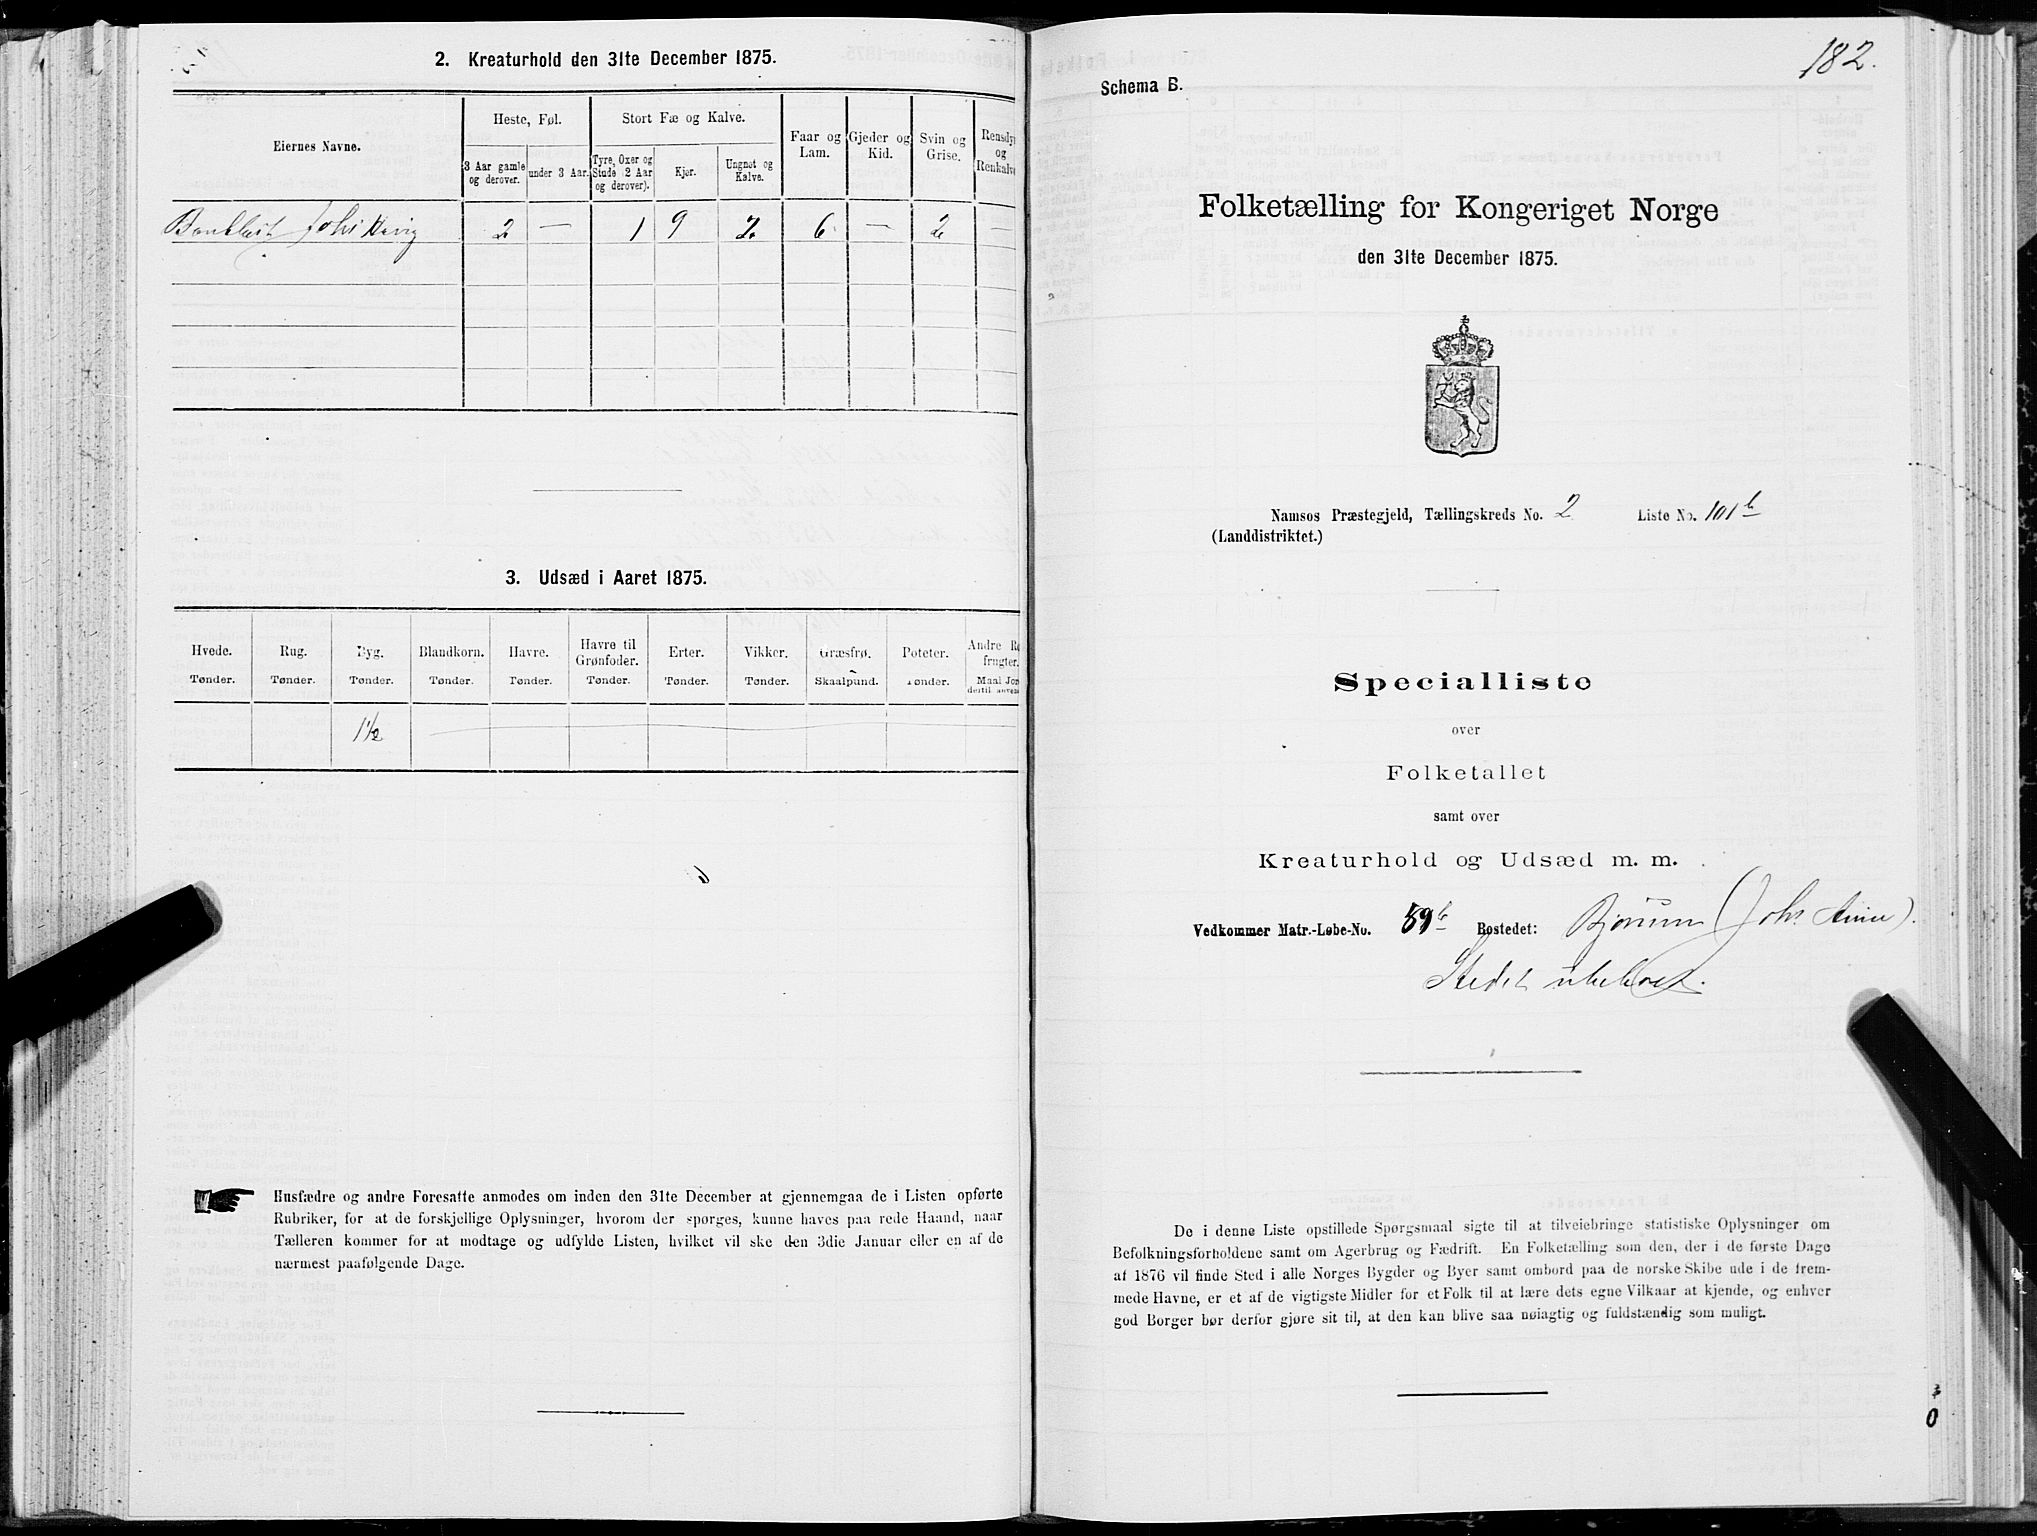 2. Kreaturhold den 31te December 1875.
Eiernes Navne.
Heste, Føl.
Stort Fæ og Kalve.
Faar og Lam.
Gjeder og Kid.
Svin og Grise.
Rensdyr og Renkalve
3 Aar gamle og derover.
under 3 Aar.
Tyre, Oxer og Stude (2 Aar og derover).
Kjør.
Ungnøt og Kalve.
2 — 1 9 2 6 — 2 —
3. Udsæd i Aaret 1875.
Hvede. Rug. Byg. Blandkorn. Havre. Havre til Grønfoder. Erter. Vikker. Græsfrø. Poteter. Andre Ro frugter.
Tønder. Tønder. Tønder. Tønder. Tønder. Tønder. Tønder. Tønder. Skaalpund. Tønder. Maal Jor dertil anven
1½
Husfædre og andre Foresatte anmodes om inden den 31te December at gjennemgaa de i Listen opførte
Rubriker, for at de forskjellige Oplysninger, hvorom der spørges, kunne haves paa rede Haand, naar
Tælleren kommer for at modtage og udfylde Listen, hvilket vil ske den 3die Januar eller en af de
nærmest paafølgende Dage.
182.
Schema B.
Folketælling for Kongeriget Norge
den 31te December 1875.
Namsos Præstegjeld, Tællingskreds No. 2 Liste No. 101b
(Landdistriktet.)
Specialliste
over
Folketallet
samt over
Kreaturhold og Udsæd m. m.
Vedkommer Matr.-Løbe-No. 59b Bostedet: Bjørum (Johs
Stedet ubeboet.
De i denne Liste opstillede Spørgsmaal sigte til at tilveiebringe statistiske Oplysninger om
Befolkningsforholdene samt om Agerbrug og Fædrift. En Folketælling som den, der i de første Dage
af 1876 vil finde Sted i alle Norges Bygder og Byer samt ombord paa de norske Skibe ude i de frem-
mede Havne, er et af de vigtigste Midler for et Folk til at lære dets egne Vilkaar at kjende, og enhver
god Borger bør derfor gjøre sit til, at den kan blive saa nøiagtig og fuldstændig som muligt.
0